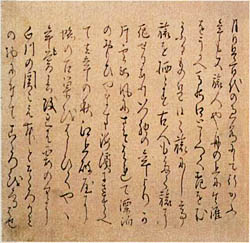 月日は百代の過客にして行かふ
年も又旅人也舟の上に生涯
をうかへ馬の口とらへて老を
むかふるものは日々旅にして
旅を栖とす古人も多く旅に
死せるあり予もいつれの年よりか
片雲の風にさそはれて漂泊
のおもひやます海濱にさすらへ
て去年の秋江上の破屋に
蜘の古巣をはらひてやゝ
年も暮春改れは霞の空に
白川の関こえんとそゝろかみ
の物につきてこゝろをくるはせ